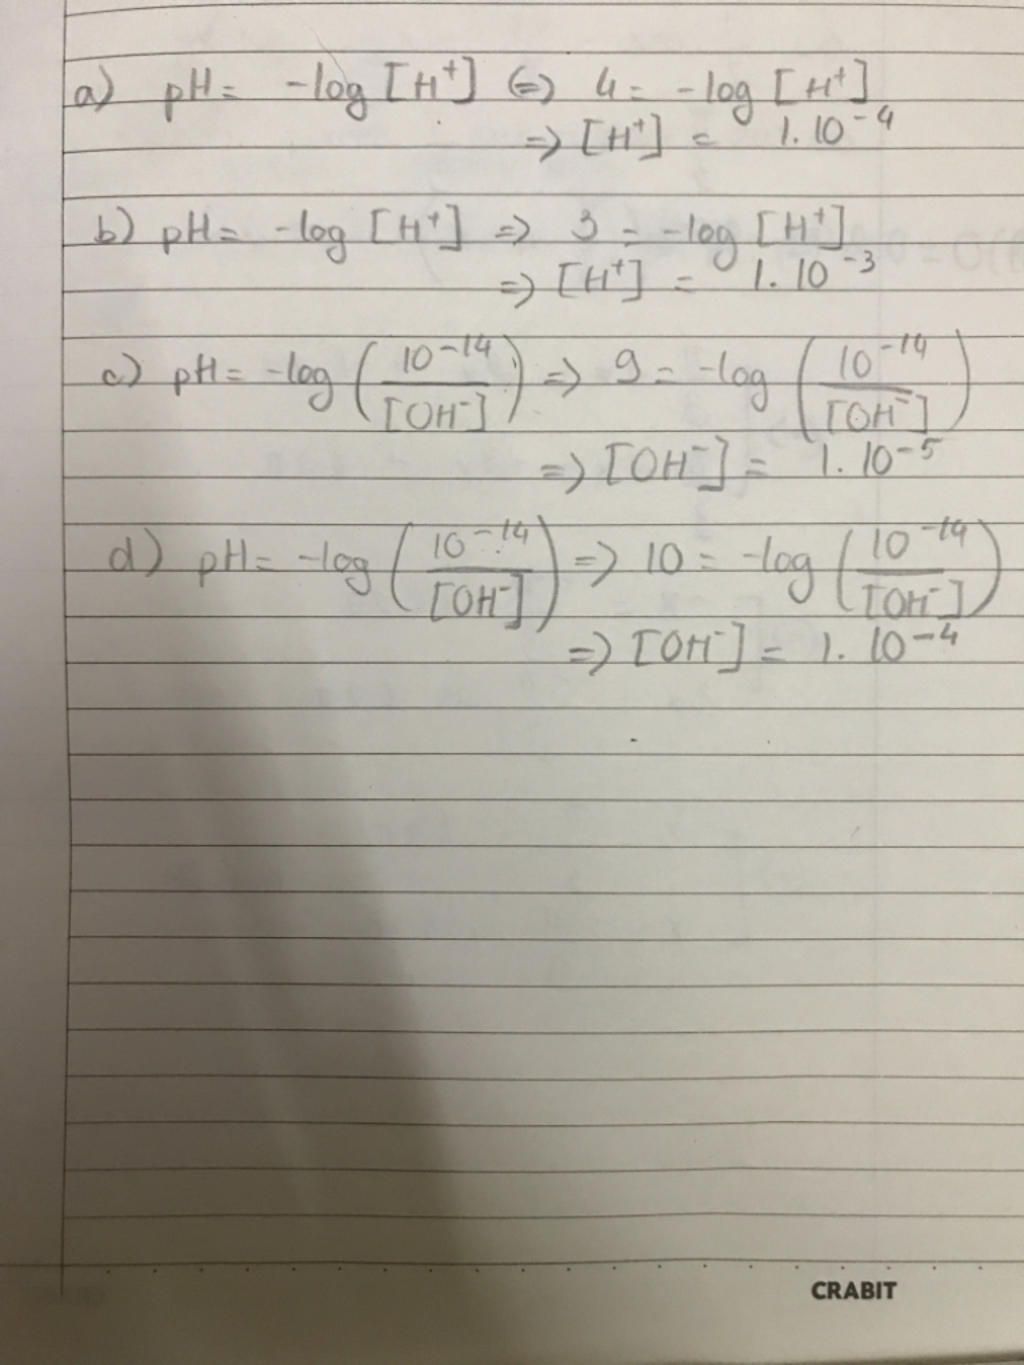 a) pH = -log [H⁺] (=) 4 = -log [H⁺]
=> [H⁺] = 1.10⁻⁴
b) pH = -log [H⁺] => 3 = -log [H⁺]
=> [H⁺] = 1.10⁻³
c) pH = -log (10⁻¹⁴/[OH⁻]) => 9 = -log (10⁻¹⁴/[OH⁻])
=> [OH⁻] = 1.10⁻⁵
d) pH = -log (10⁻¹⁴/[OH⁻]) => 10 = -log (10⁻¹⁴/[OH⁻])
=> [OH⁻] = 1.10⁻⁴
CRABIT